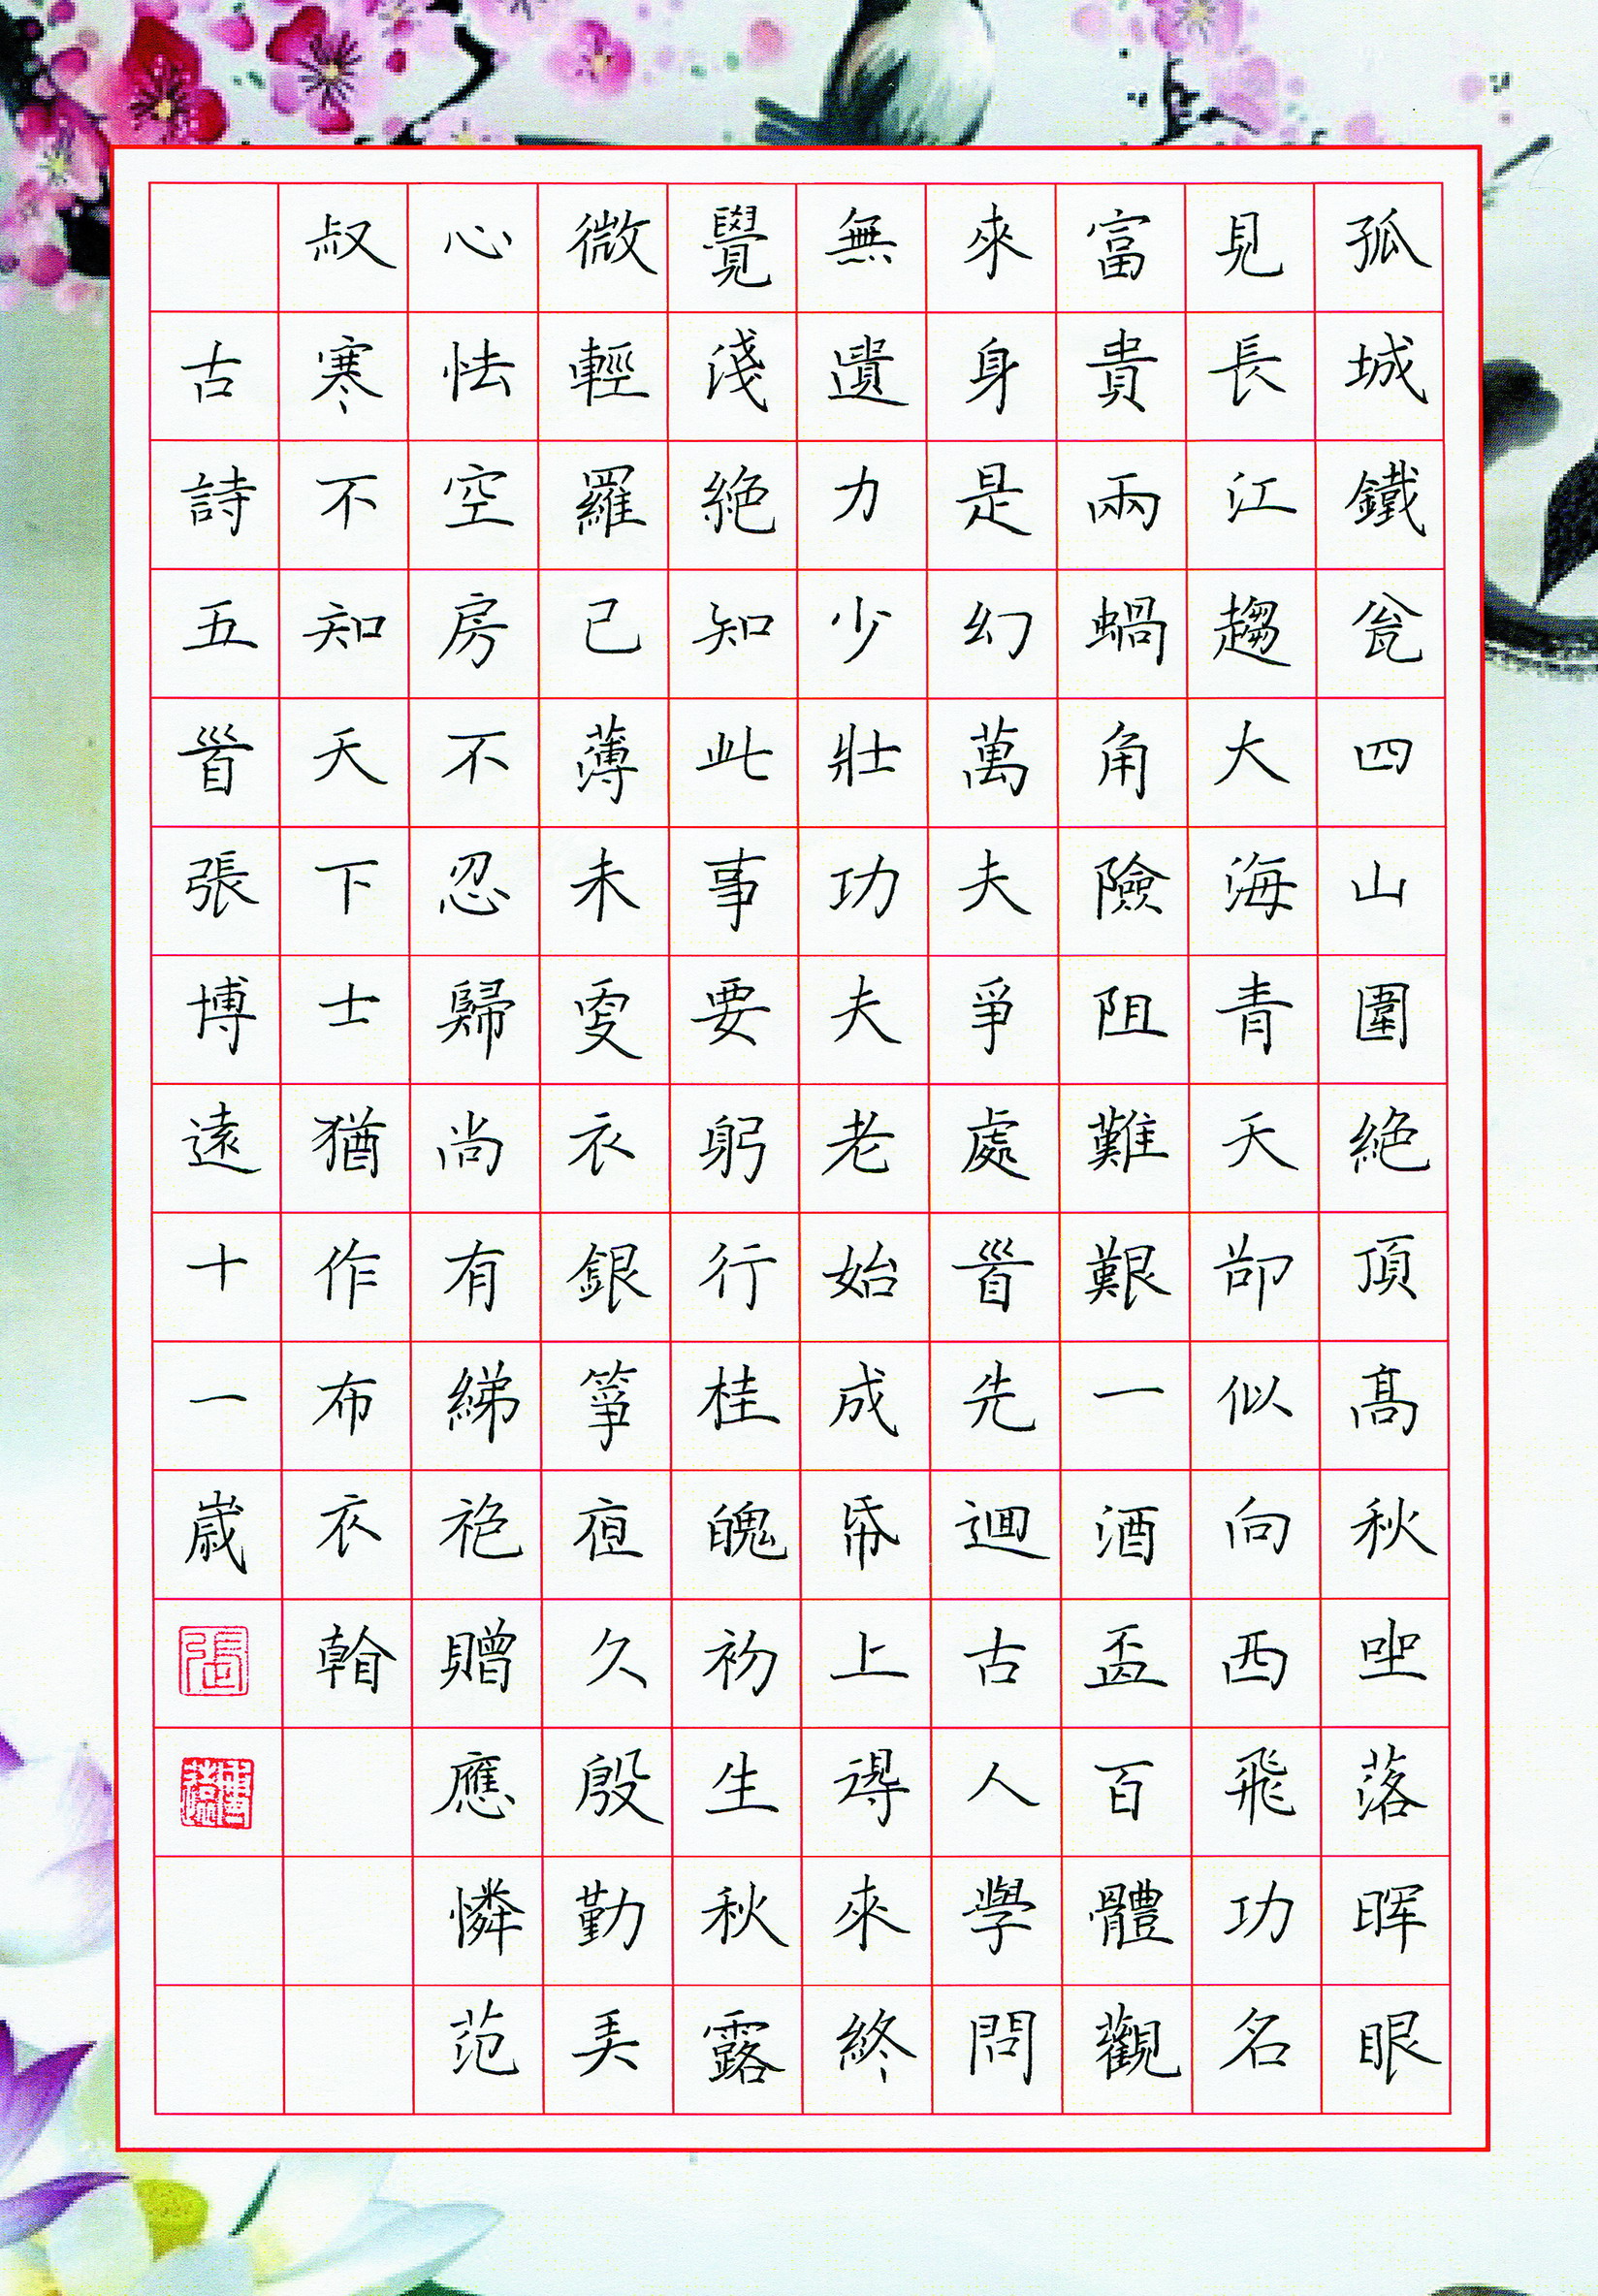 孤城鐵瓮四山圍絶頂髙秋坐落晖眼
見長江趨大海青天卻似向西飛功名
富貴兩蝸角險阻難艱一酒盃百體觀
來身是幻萬夫爭處首先迴古人學問
無遺力少壯功夫老始成帋上得來終
覺淺絶知此事要躬行桂魄初生秋露
微輕羅已薄未更衣銀筝夜久殷勤弄
心怯空房不忍歸尚有綈袍贈應憐范
叔寒不知天下士猶作布衣㸔
古詩五首張博遠十一歲
張